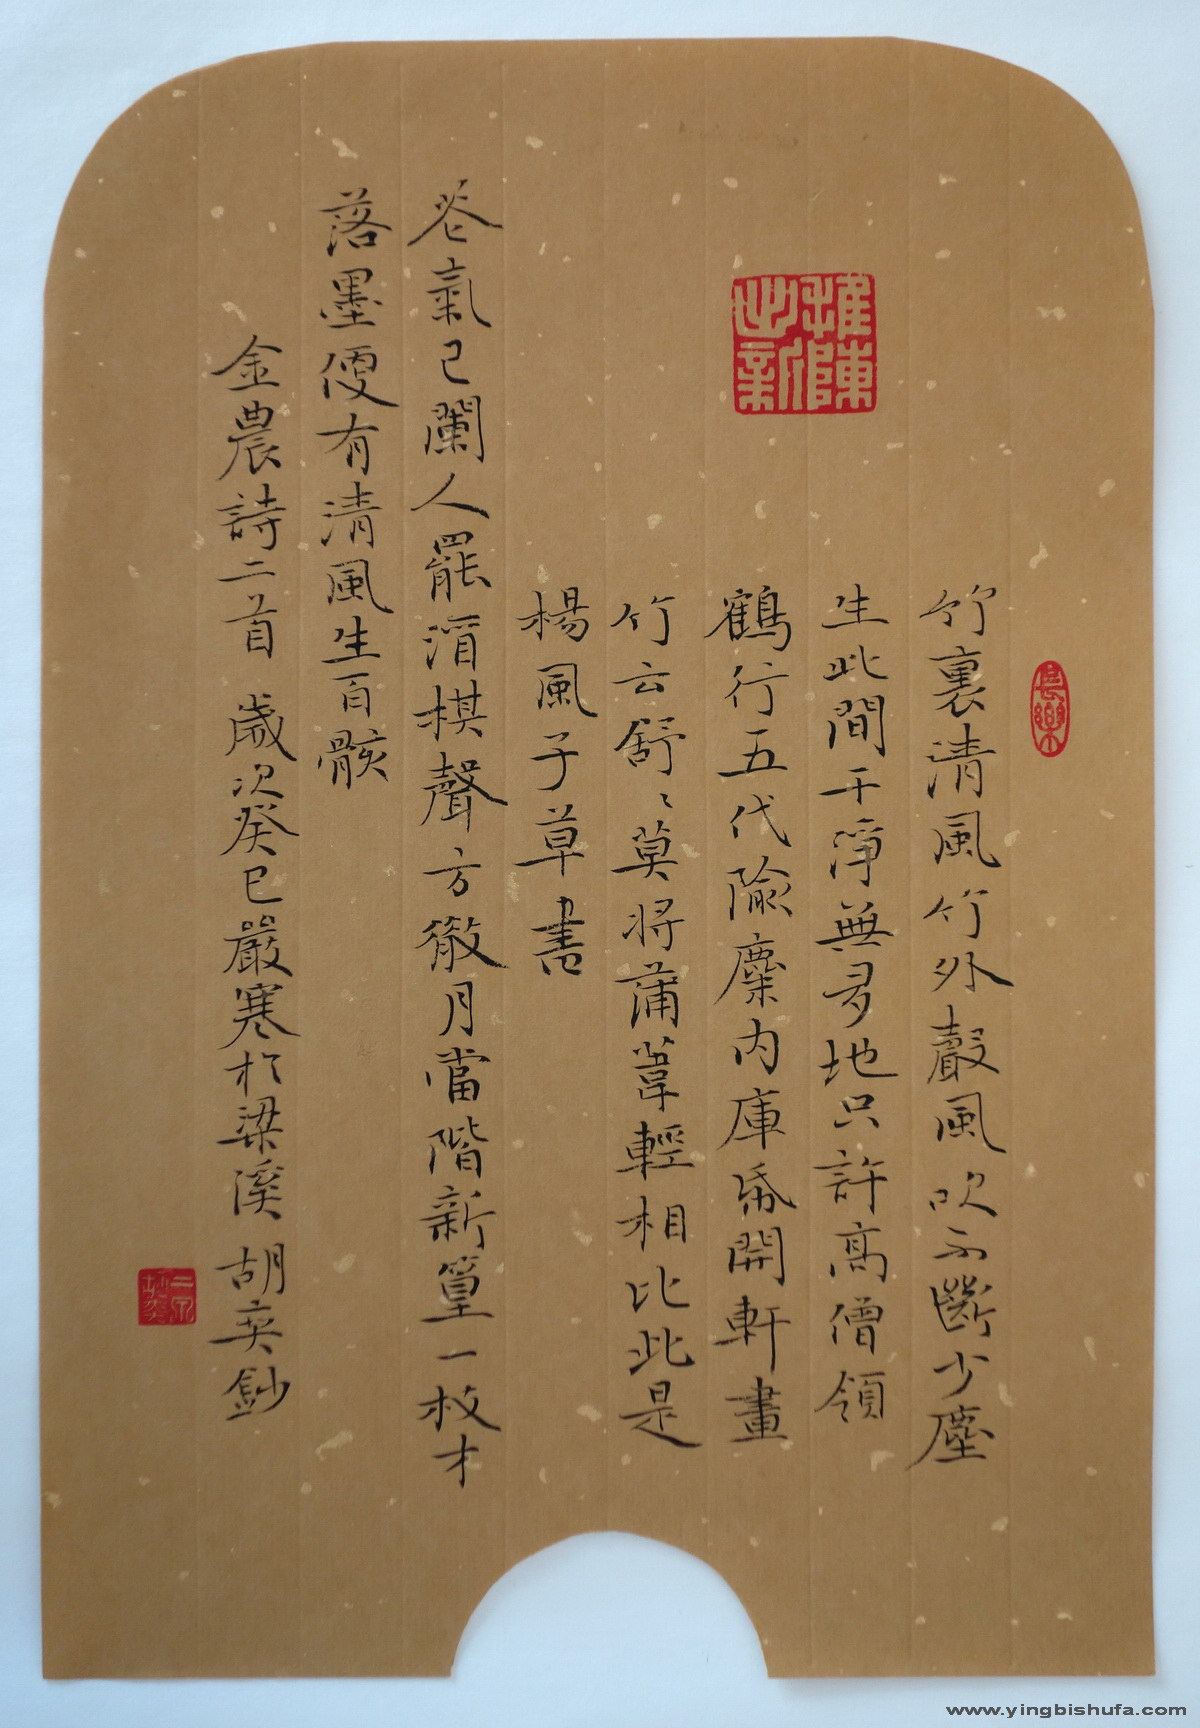 竹裏清風竹外聲風吹不斷少塵
生此間干淨無多地只許高僧領
鶴行五代隃麋內庫紙開軒畫
竹云舒〻莫將蒲葦輕相比此是
楊風子草書
茶氣已闌人罷酒棋聲方徹月當階新篁一枚才
落墨便有清風生百骸
金農詩二首 歲次癸巳嚴寒於梁溪 胡英鈔
推陳出新
長樂
www.yingbishufa.com